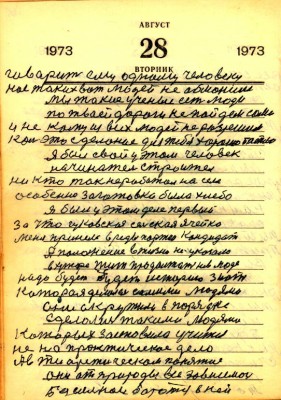 АВГУСТ
1973 28 1973
ВТОРНИК
говарит ему одному человеку
нас таких вот людей не обманиш
мы такие учение ест люди
по твоей дороги не пойдем сами
и не кому из вих людей не разрешим
как это сделоное для тебя хорошо
я был свой у этом человек
начинател строител
ни кто так неработал на сели
особенно заготовка была хлеба
я был у этом деле первый
За что гуковская селская ячейка
мене приняли в ряды партии кандидат
Я положение в жизни
жит продолжат на люде
надо буде будет историю знат
которая делалас самими людямы
они закрутили в порядке
сделолис такими людямы
Которых заставила учитис
не на практическое дело
А в тиаретическом понятие
они от природы все зависимои
Басилной богату в ней